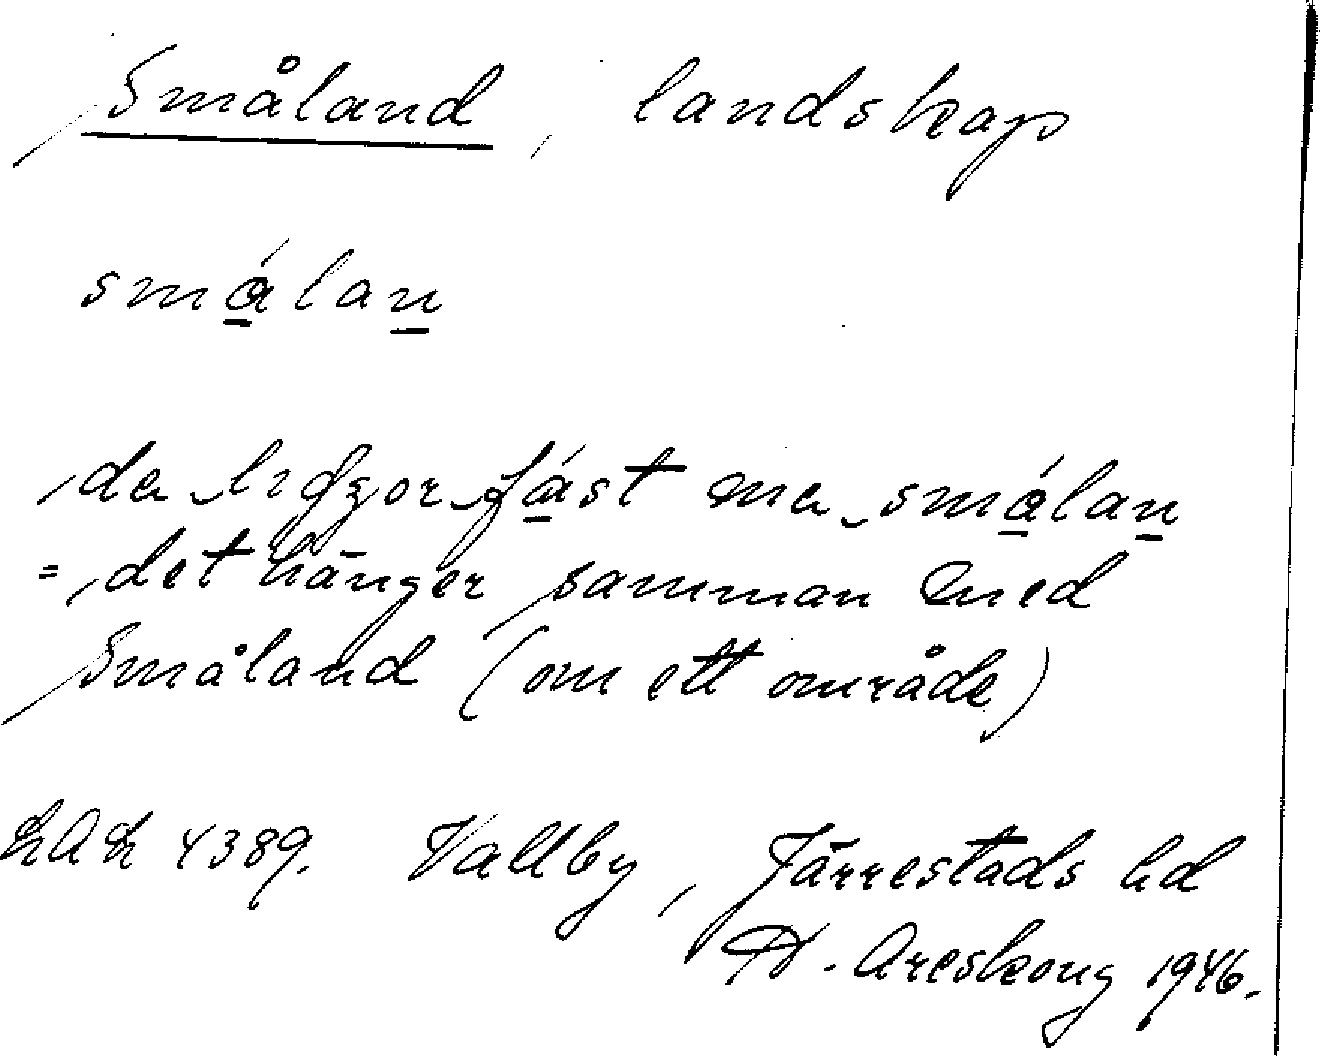 Småland, landskap
smálan
, da lıggor fást me smálan
= , det hänger samman med
Småland (om ett område)
LAL 4389. Vallby, Järrestads hd
H. Areskoug 1946.